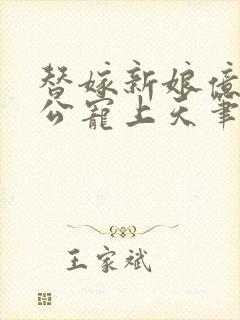 替嫁新娘億
公寵上天筆
王家斌